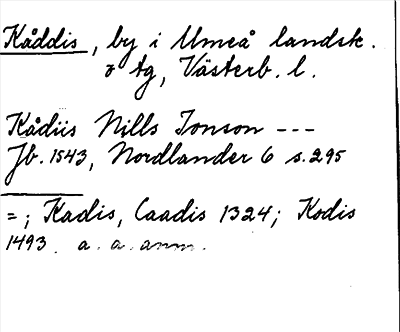 Kåddis, by i Umeå landsk.
o tg, Västerb. l.
Kådiis Nills Jonson ---
Jb. 1543, Nordlander 6 s. 295
= ; Kadis, Caadis 1324; Kodis
1493. a. a. anm.